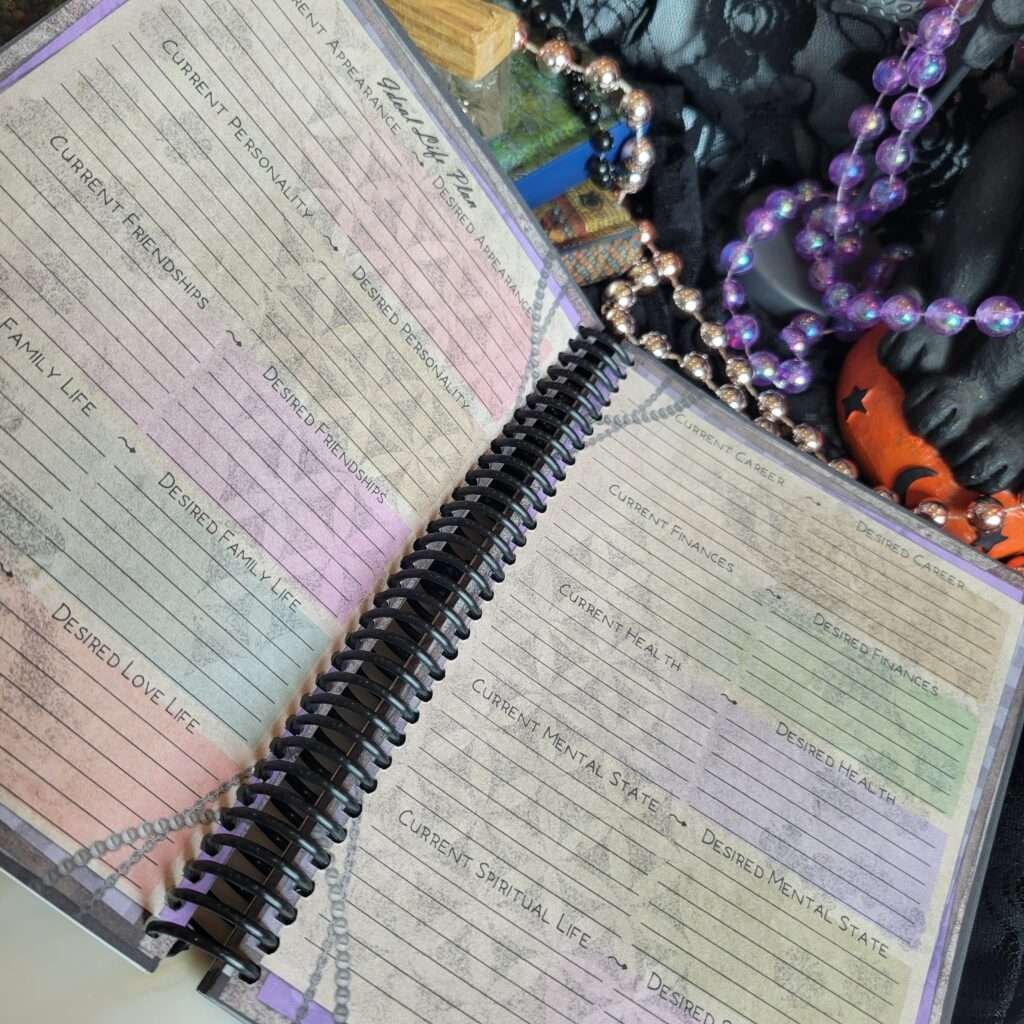 Ideal Life Plan
Current Appearance ~ Desired Appearance
Current Personality ~ Desired Personality
Current Friendships ~ Desired Friendships
Family Life ~ Desired Family Life
~ Desired Love Life
Current Career ~ Desired Career
Current Finances ~ Desired Finances
Current Health ~ Desired Health
Current Mental State ~ Desired Mental State
Current Spiritual Life ~ Desired